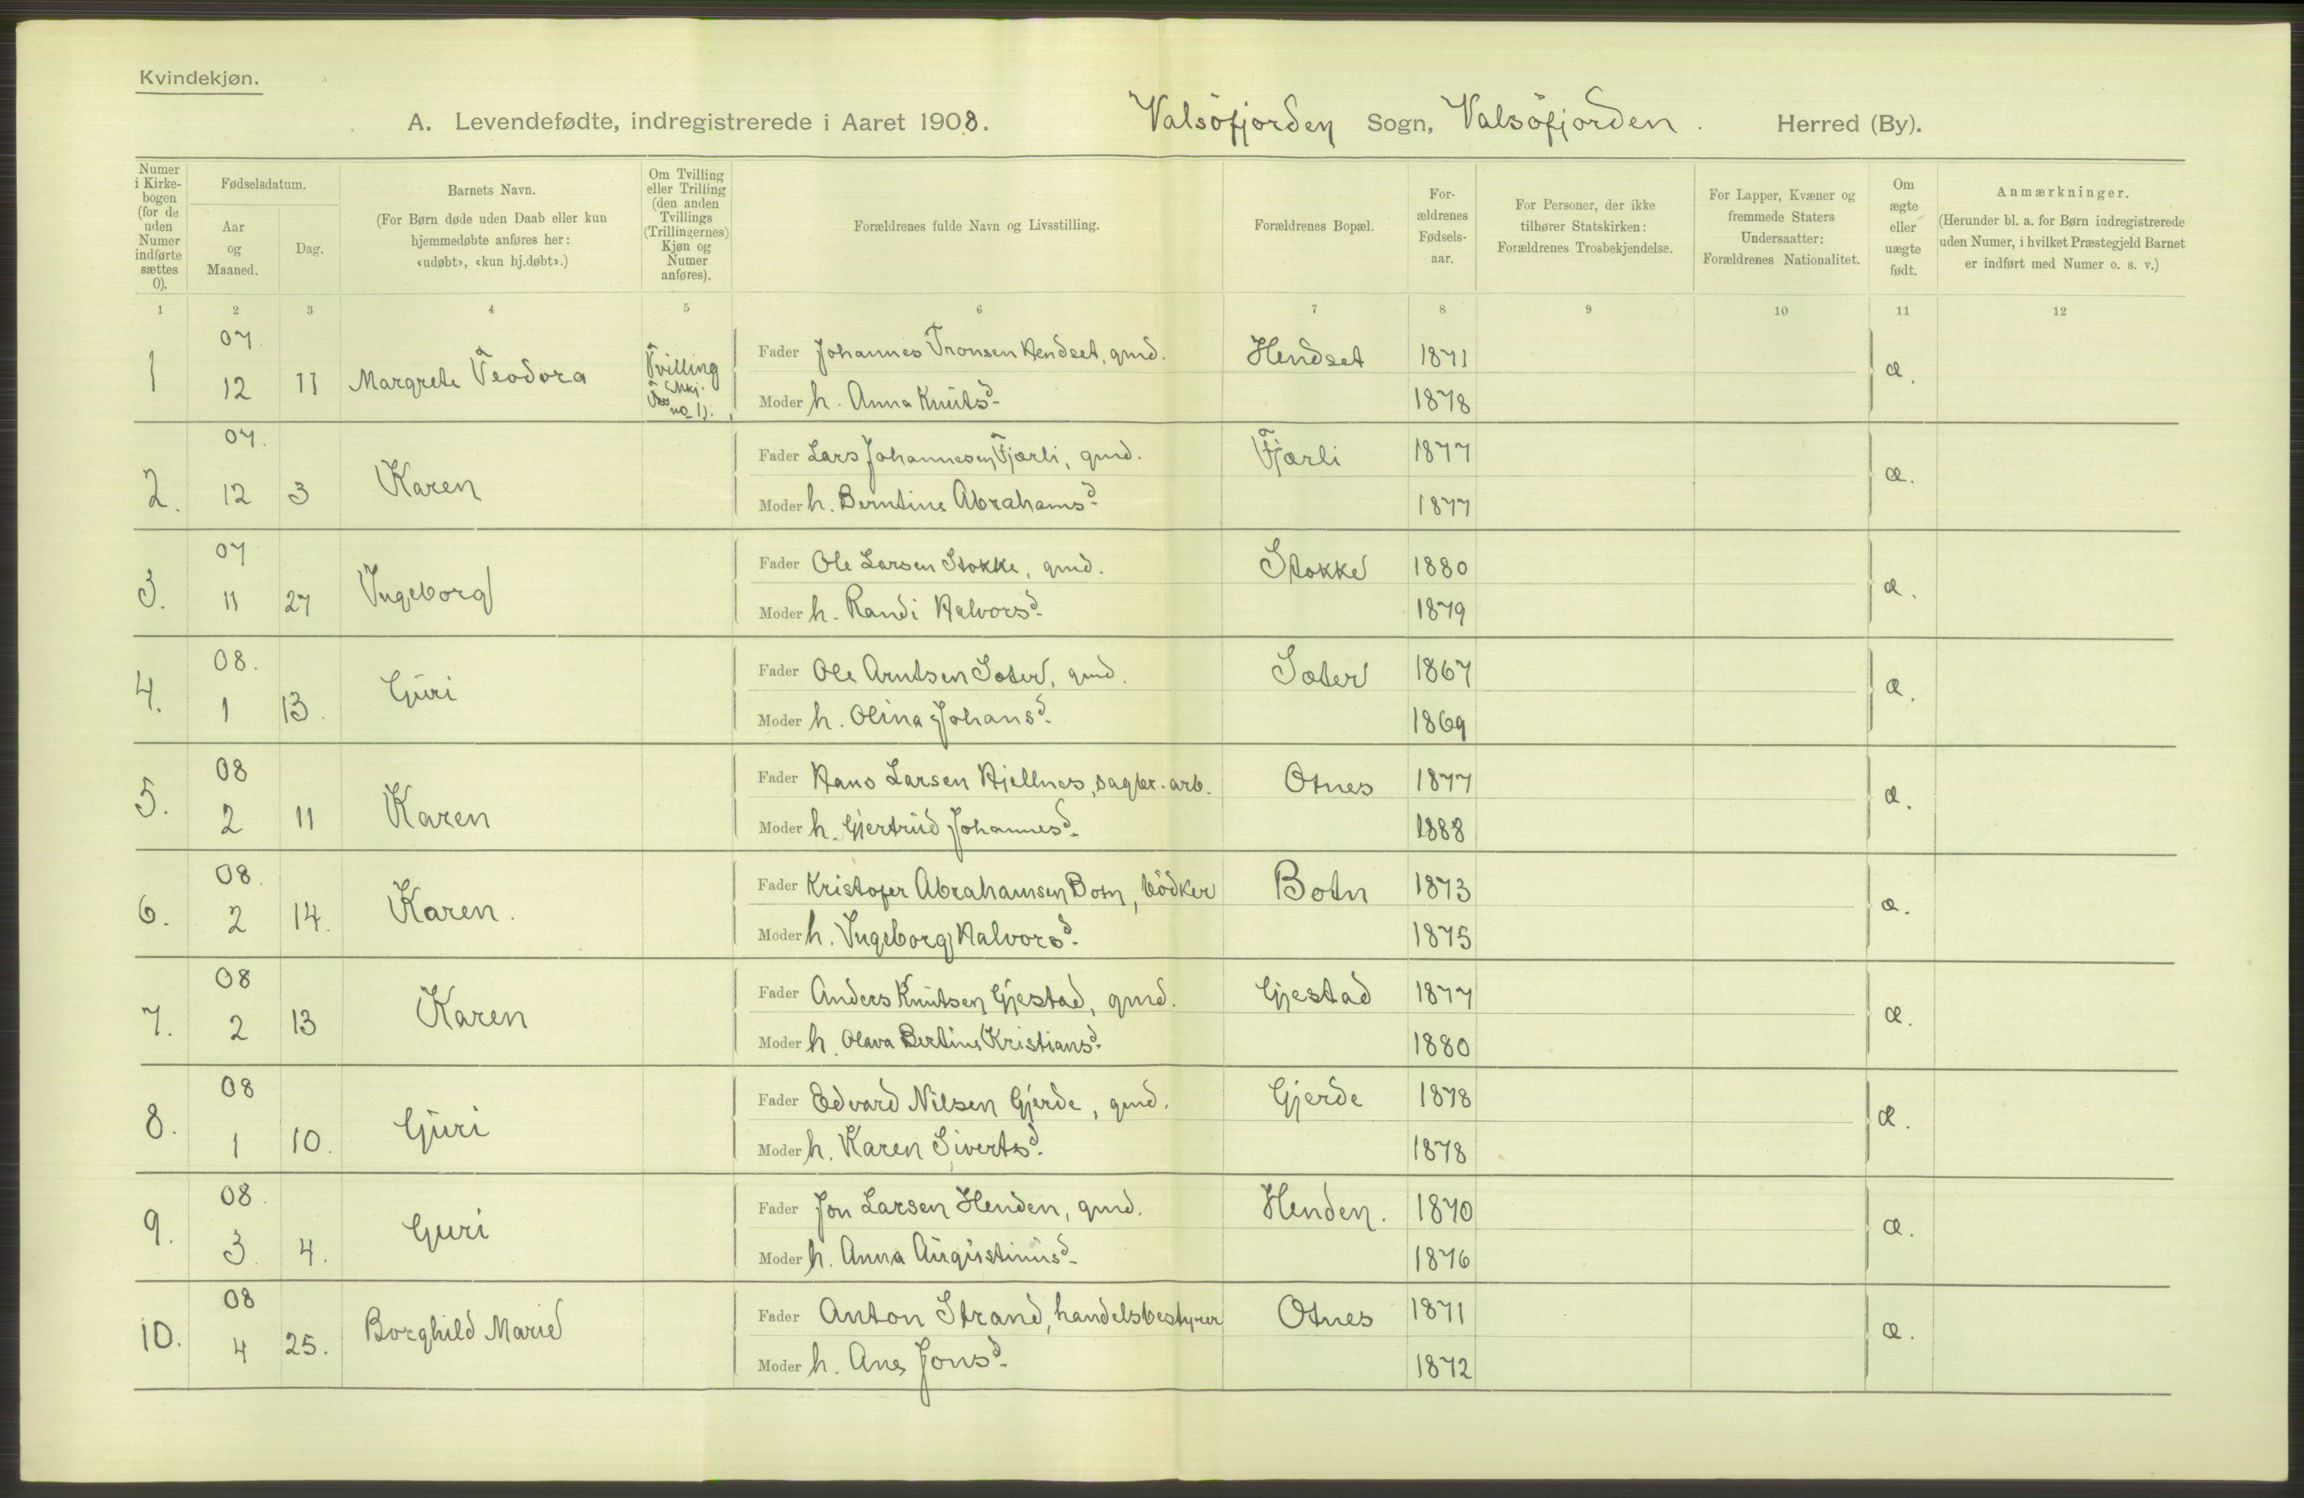 Kvindekjøn.
A. Levendefødte, indregistrerede i Aaret 1908. Valsöfjorden Sogn, Valsöfjorden. Herred (By).
Numer i Kirkebogen (for de uden Numer indførte sættes 0).
Fødselsdatum.
Aar og Maaned.
Dag.
Barnets Navn.
(For Børn døde uden Daab eller kun hjemmedøbte anføres her: «udøbt», «kun hj.døbt».)
Om Tvilling eller Trilling (den anden Tvillings (Trillingernes) Kjøn og Numer anføres).
Forældrenes fulde Navn og Livsstilling.
Forældrenes Bopæl.
Forældrenes Fødselsaar.
For Personer, der ikke tilhører Statskirken: Forældrenes Trosbekjendelse.
For Lapper, Kvæner og fremmede Staters Undersaatter: Forældrenes Nationalitet.
Om ægte eller uægte født.
Anmærkninger.
(Herunder bl. a. for Børn indregistrerede uden Numer, i hvilket Præstegjeld Barnet er indført med Numer o. s. v.)
1 2 3 4 5 6 7 8 9 10 11 12
1 07. 12 11 Margrete Teodora Tvilling (Mkj. no 1). Fader Johannes Tronsen Hendset, gmd. Hendset 1871 æ.
Moder h. Anna Knutsd. 1878
2. 07. 12 3 Karen Fader Lars Johannesen Fjærli, gmd. Fjærli 1877 æ.
Moder h. Berntine Abrahamsd. 1877
3. 07 11 27 Ingeborg Fader Ole Larsen Stokke, gmd. Stokke 1880 æ.
Moder h. Randi Halvorsd. 1879
4. 08. 1 13. Guri Fader Ole Arntsen Sæter, gmd. Sæter 1867 æ.
Moder h. Olina Johansd. 1869
5. 08 2 11 Karen Fader Hans Larsen Hjellnes, sagbr. arb. Otnes 1877 æ.
Moder h. Gjertrud Johannesd. 1888
6. 08. 2 14. Karen. Fader Kristofer Abrahamsen Botn, bödker Botn 1873 æ.
Moder h. Ingeborg Halvorsd. 1875
7. 08 2 13 Karen Fader Anders Knutsen Gjestad, gmd. Gjestad 1877 æ.
Moder h. Olava Bertine Kristiansd. 1880
8. 08 1 10. Guri Fader Edvard Nilsen Gjerde, gmd. Gjerde 1878 æ.
Moder h. Karen Sivertsd. 1878
9. 08. 3 4. Guri Fader Jon Larsen Henden, gmd. Henden. 1870 æ.
Moder h. Anna Augustinusd. 1876
10. 08 4 25. Borghild Marie Fader Anton Strand, handelsbestyrer Otnes 1871 æ.
Moder h. Ane Jonsd. 1872